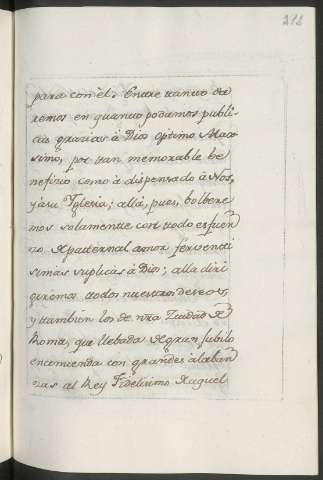 212
para con èl. Entre tanto da
remos en quanto podamos publi
cas gracias à Dios optimo Maxi
simo, por tan memorable be
neficio como à dispensado à Nos,
y à su Yglesia; allà, pues, bolbere
mos solamente con todo esfuer
zo de paternal amor ferventi
simas suplicas à Dios; alla diri
giremos todos nuestros deseos,
y tambien los de nra Ziudad de
Roma, que llebada de gran jubilo
encomienda con grandes alaban
zas al Rey Fidelisimo de aquel